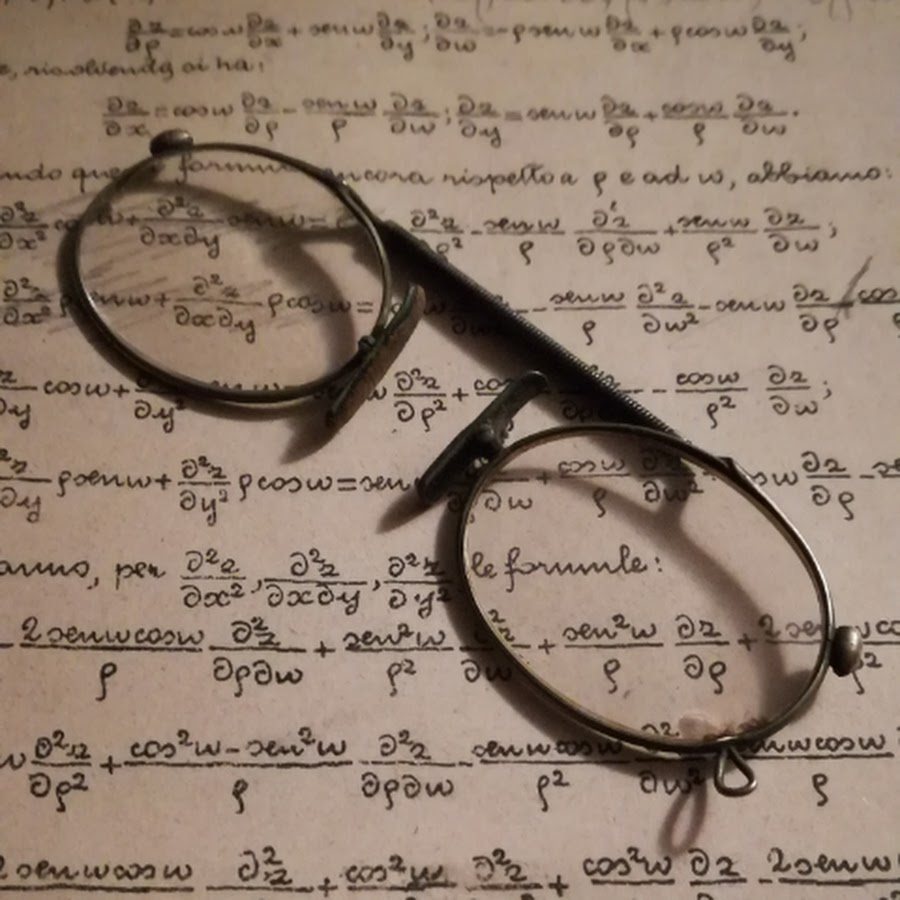 ∂z/∂ρ = cos w ∂z/∂x + sen w ∂z/∂y ; ∂z/∂w = -ρ sen w ∂z/∂x + ρ cos w ∂z/∂y ;
e, risolvendo si ha:
∂z/∂x = cos w ∂z/∂ρ - sen w/ρ ∂z/∂w ; ∂z/∂y = sen w ∂z/∂ρ + cos w/ρ ∂z/∂w .
ndo que formule ancora rispetto a ρ e ad w, abbiamo:
∂²z/∂x² cos w + ∂²z/∂x∂y sen w = ∂²z/∂ρ² - sen w/ρ ∂²z/∂ρ∂w + sen w/ρ² ∂z/∂w ;
∂²z/∂x² ρ sen w + ∂²z/∂x∂y ρ cos w = - sen w/ρ ∂²z/∂w² - sen w ∂z/∂ρ - cos
∂y cos w + ∂y² w ∂²z/∂ρ² + cos - cos w/ρ² ∂z/∂w ;
∂y ρ sen w + ∂²z/∂y² ρ cos w = sen ∂ρ∂w + cos w/ρ ∂²z/∂w² w ∂z/∂ρ - se
anno, per ∂²z/∂x² , ∂²z/∂x∂y , ∂²z/∂y² le formule:
- 2 sen w cos w/ρ ∂²z/∂ρ∂w + sen² w/ρ² ∂²z/∂w² + sen² w/ρ ∂z/∂ρ + 2 sen w co/ρ²
w ∂²z/∂ρ² + cos² w - sen² w/ρ ∂²z/∂ρ∂w - sen w cos w/ρ² ∂²z/∂w² sen w cos w/ρ
2 sen w cos w ∂²z + cos² w ∂²z + cos² w ∂z - 2 sen w